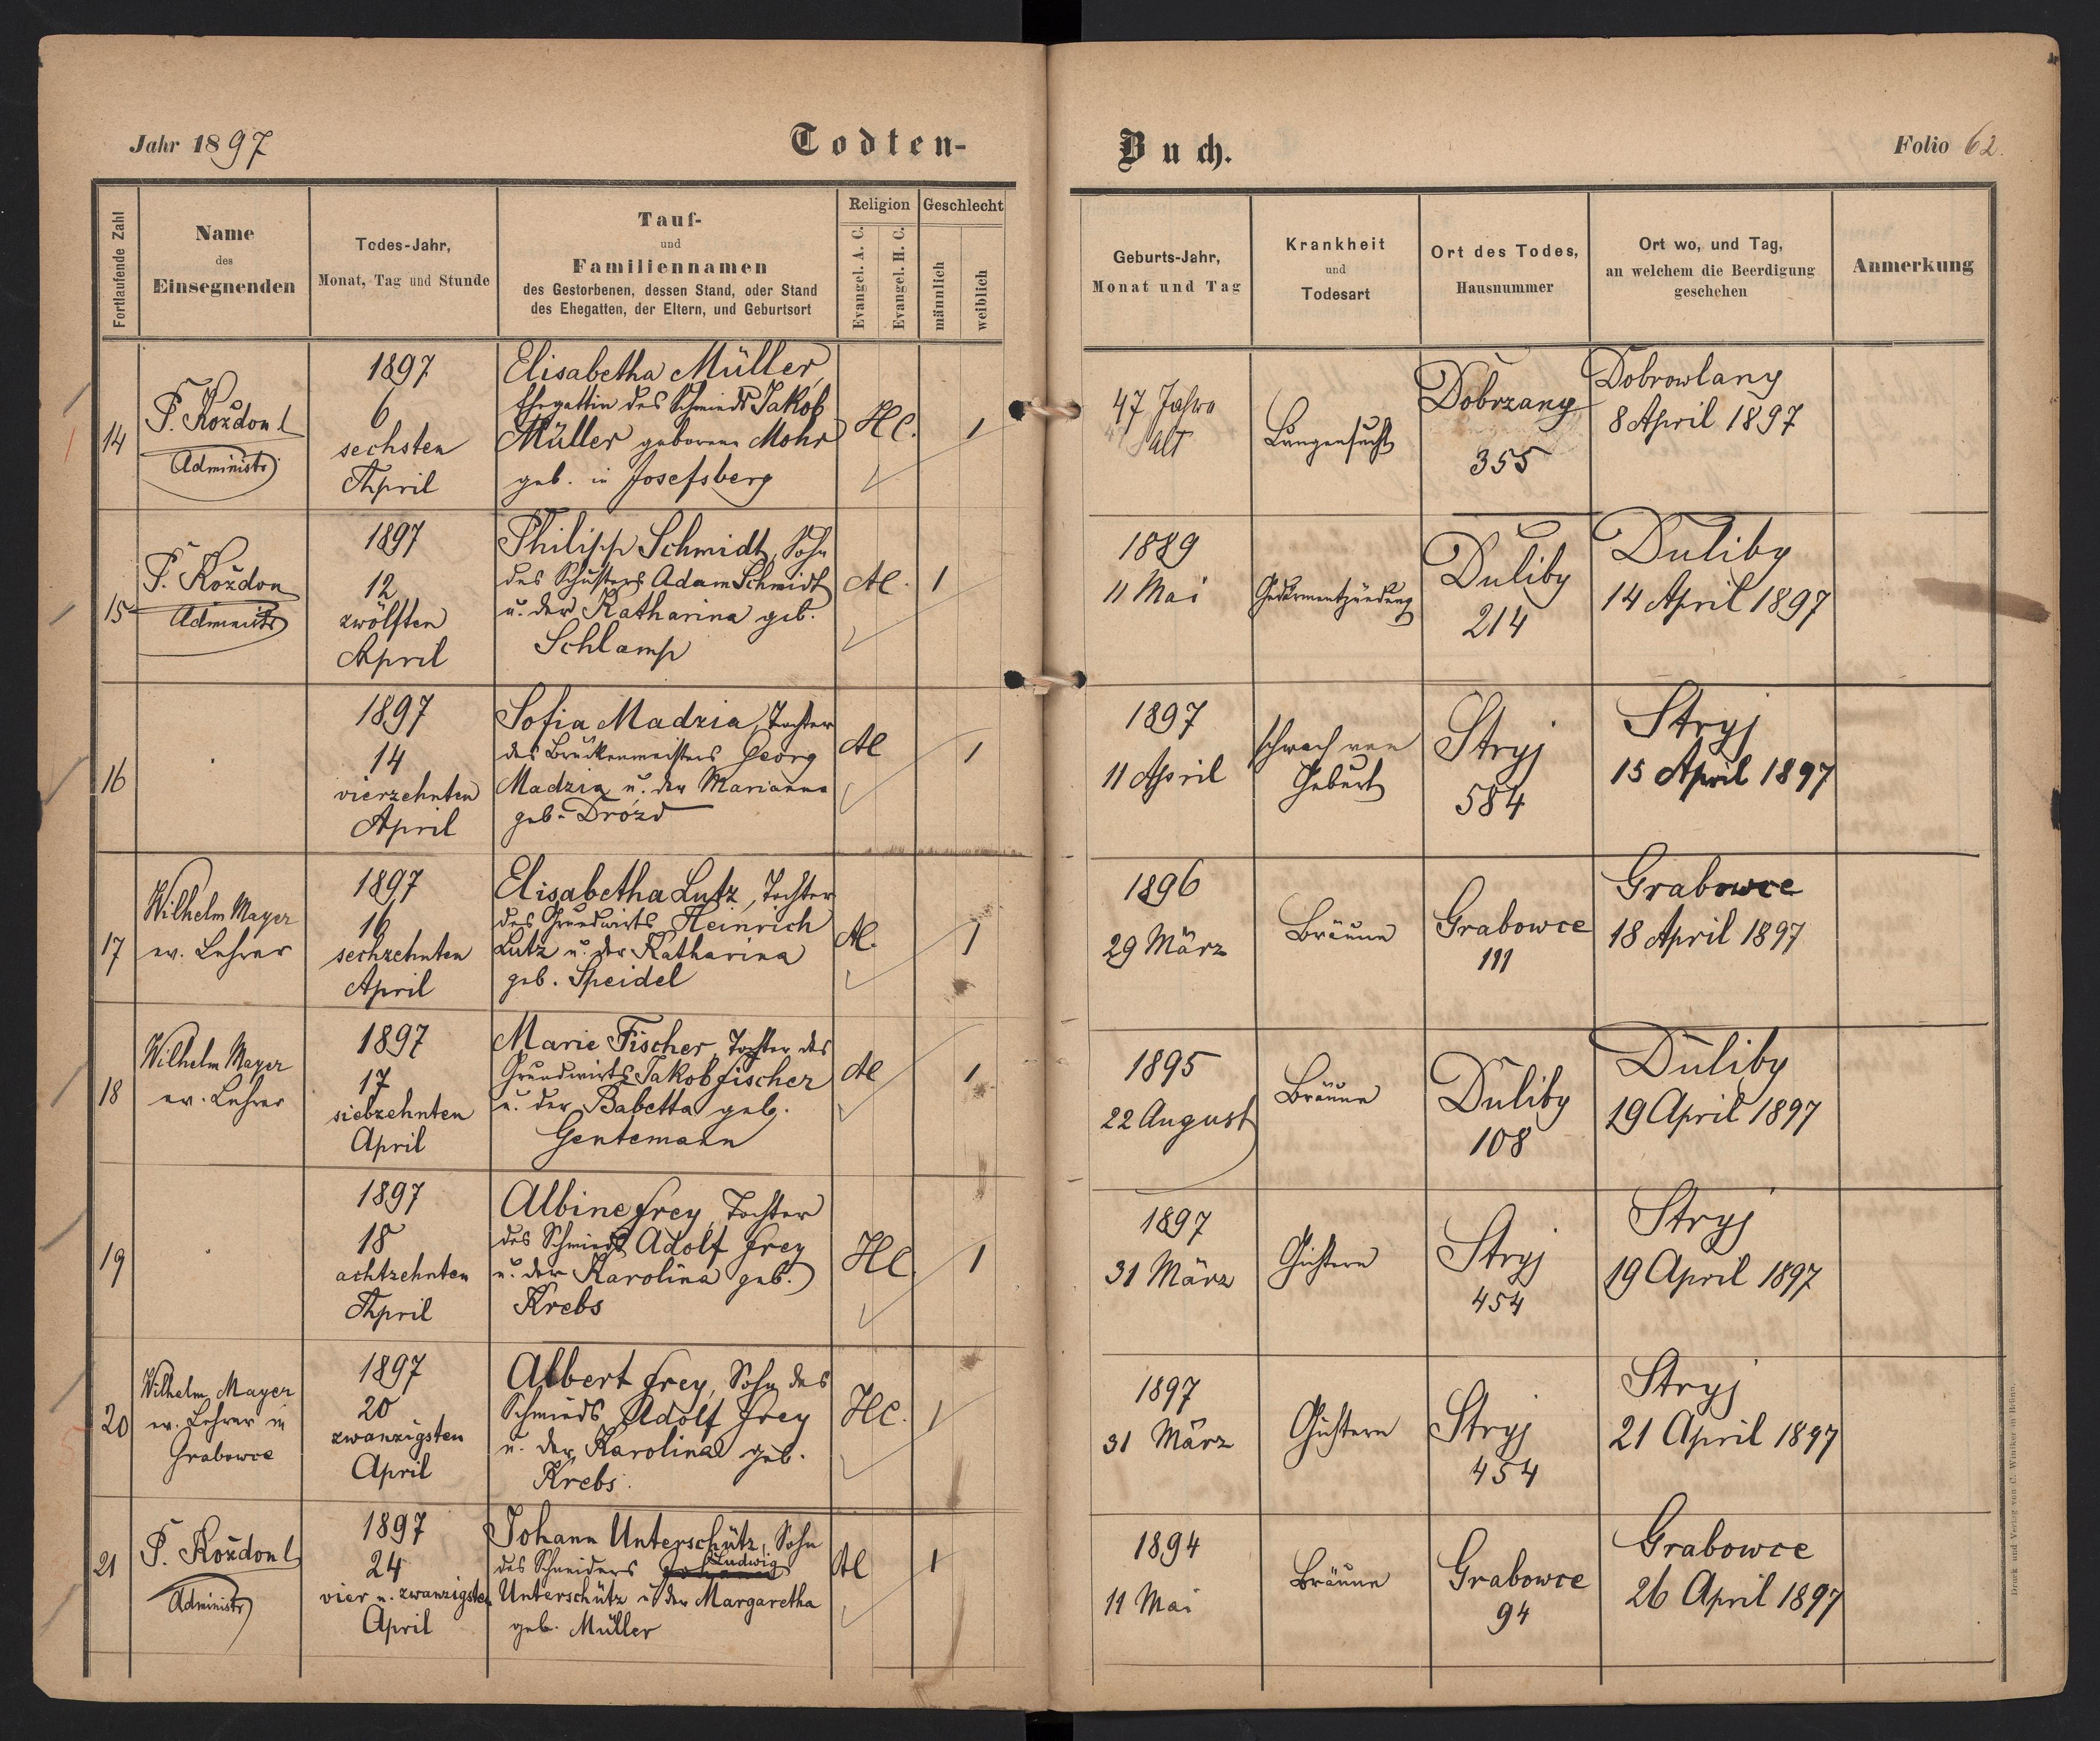 Jahr 1897
Todten-
Buch.
Folio 62.
Fortlaufende Zahl
Name
des
Einsegnenden
Todes-Jahr,
Monat, Tag und Stunde
Tauf-
und
Familiennamen
des Gestorbenen, dessen Stand, oder Stand
des Ehegatten, der Eltern, und Geburtsort
Religion
Evangel. A. C.
Evangel. H. C.
Geschlecht
männlich
weiblich
Geburts-Jahr,
Monat und Tag
Krankheit
und
Todesart
Ort des Todes,
Hausnummer
Ort wo, und Tag,
an welchem die Beerdigung
geschehen
Anmerkung
14
P. Kozdon
Administr
1897
6
sechsten
April
Elisabetha Müller,
Ehegattin des Schmieds Jakob
Müller geborene Mohr
geb. in Josefsberg
HC.
1
47 Jahre
alt
Lungensucht
Dobrzany
355
Dobrowlany
8 April 1897
15
P. Kozdon
Administr
1897
12
zwölften
April
Philipp Schmidt, Sohn
des Schusters Adam Schmidt
u. der Katharina geb.
Schlamp
AC.
1
1889
11 Mai
Gedärmentzündung
Duliby
214
Duliby
14 April 1897
16
1897
14
vierzehnten
April
Sofia Madzia, Tochter
des Brückenmeisters Georg
Madzia u. der Marianna
geb. Drózd
AC
1
1897
11 April
schwach von
Geburt
Stryj
584
Stryj
15 April 1897
17
Wilhelm Mayer
ev. Lehrer
1897
16
sechzehnten
April
Elisabetha Lutz, Tochter
des Grundwirts Heinrich
Lutz u. der Katharina
geb. Speidel
AC.
1
1896
29 März
Bräune
Grabowce
111
Grabowce
18 April 1897
18
Wilhelm Mayer
ev. Lehrer
1897
17
siebzehnten
April
Marie Fischer, Tochter des
Grundwirts Jakob Fischer
u. der Babetta geb.
Gentemann
AC
1
1895
22 August
Bräune
Duliby
108
Duliby
19 April 1897
19
1897
18
achtzehnten
April
Albine Frey, Tochter
des Schmieds Adolf Frey
u. der Karolina geb.
Krebs
HC.
1
1897
31 März
Gichtern
Stryj
454
Stryj
19 April 1897
20
Wilhelm Mayer
ev. Lehrer in
Grabowce
1897
20
zwanzigsten
April
Albert Frey, Sohn des
Schmieds Adolf Frey
u. der Karolina geb.
Krebs.
HC.
1
1897
31 März
Gichtern
Stryj
454
Stryj
21 April 1897
21
P. Kozdon
Administr
1897
24
vier u. zwanzigsten
April
Johann Unterschütz, Sohn
des Schneiders Ludwig
Unterschütz u. der Margaretha
geb. Müller
AC
1
1894
11 Mai
Bräune
Grabowce
94
Grabowce
26 April 1897
Druck und Verlag von C. Winiker in Brünn.